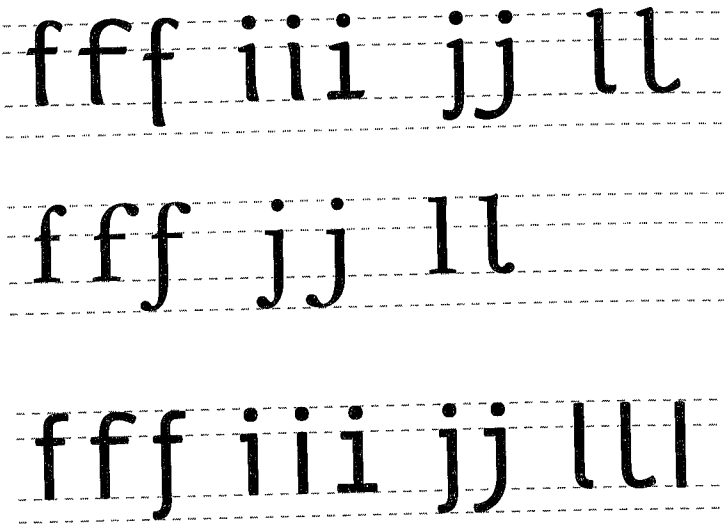 fff iii jj ll
fff jj ll
fff iii jj lll